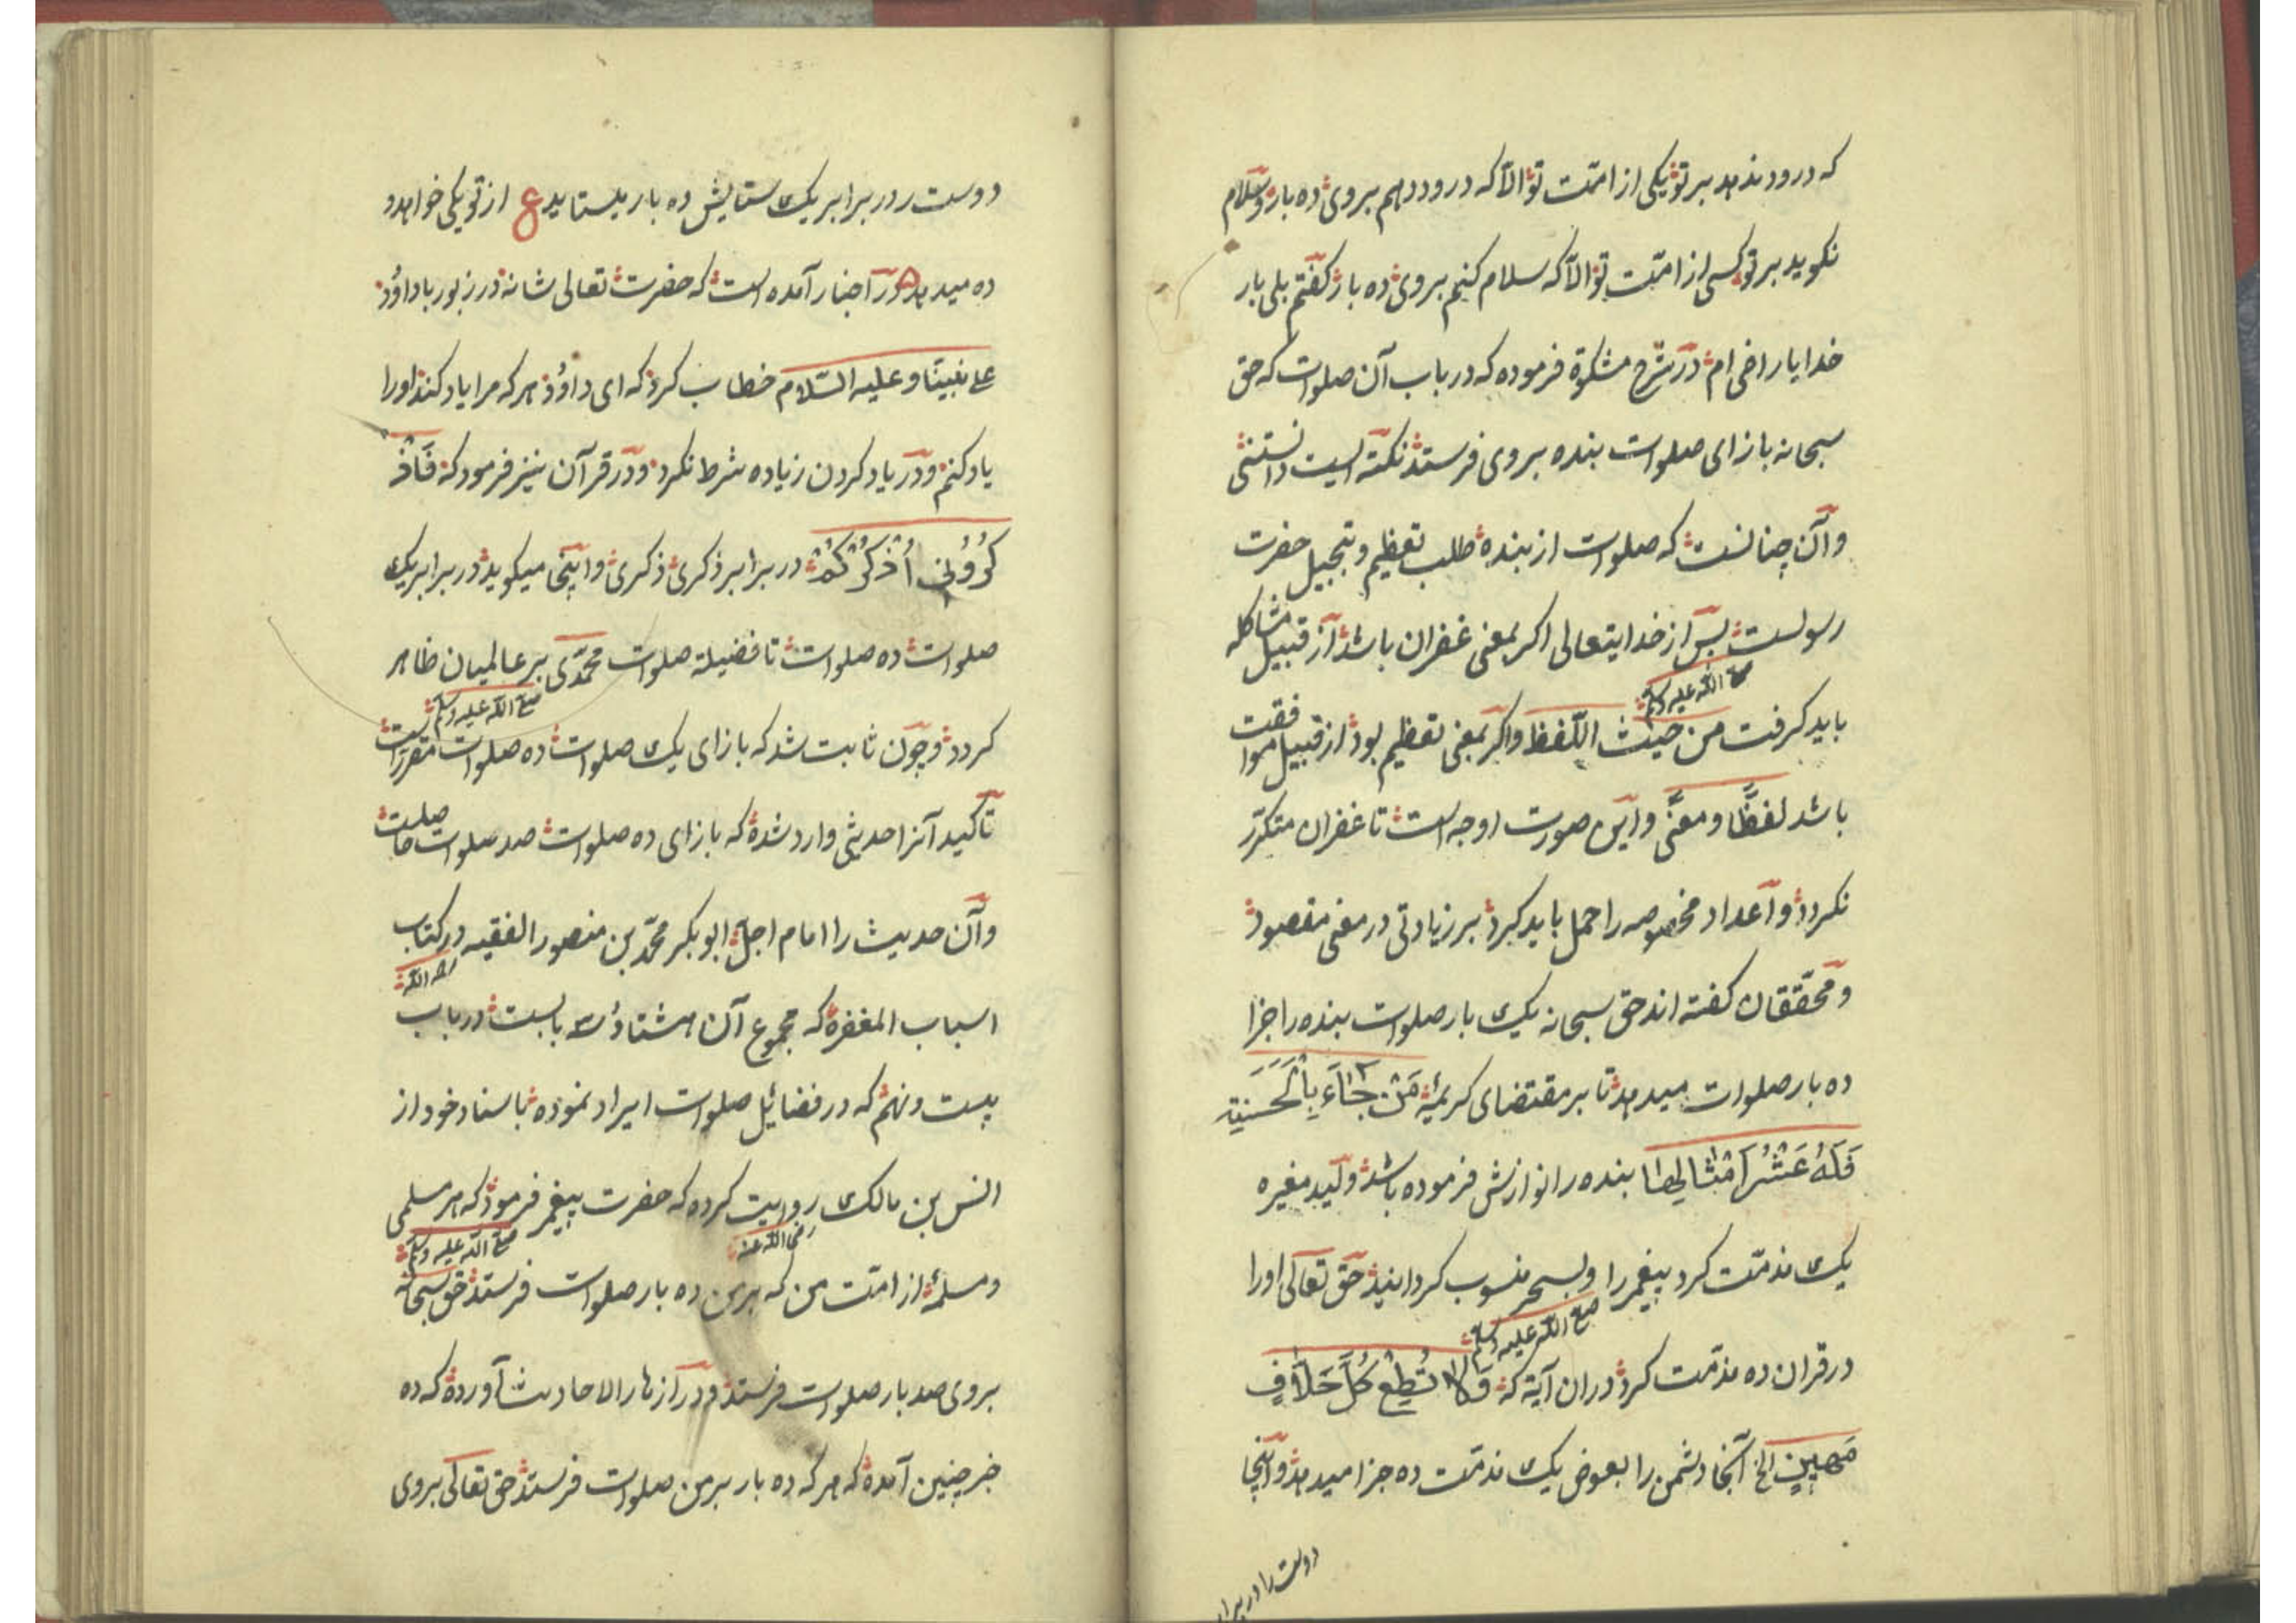 که درود ندهد بر تو یکی از امّت تو الّا که درود دهم بر وی ده بار و سلام
نکوید بر تو کسی از امّت تو الّا که سلام کنم بر وی ده بار کفتم بلی بار
خدایا راضی ام در شرح مشکوة فرموده که در باب آن صلوات که حق
سبحانه بازای صلوات بنده بر وی فرستد نکته ایست دانستنی
و آن چنانست که صلوات از بنده طلب تعظیم و تبجیل حضرت
رسولست پس از خدایتعالی اکر بمعنی غفران باشد از قبیل مشاکله
صلی اللّه علیه وسلم
باید کرفت من حیث اللّفظ و اکر بمعنی تعظیم بود از قبیل موافقت
باشد لفظًا و معنًی و این صورت اوجه است تا غفران متکرّر
نکردد و اعداد مخصوصه را حمل باید کرد بر زیادتی در معنی مقصود
و محقّقان کفته اند حق سبحانه یک بار صلوات بنده را جزا
ده بار صلوات میدهد تا بر مقتضای کریمۀ مَنْ جَاءَ بِالْحَسَنَةِ
فَلَهُ عَشْرُ اَمْثَالِهَا بنده را نوازش فرموده باشد ولید مغیره
یک مذمّت کرد پیغمبر را و بسحر منسوب کردانید حق تعالی اورا
صلی اللّه علیه وسلم
در قران ده مذمّت کرد در ان آیة که وَلَا تُطِعْ کُلَّ حَلَّافٍ
مَهِینٍ الخ آنجا دشمن را بعوض یک مذمّت ده جزا میدهد و اینجا
دوست را در برابر
دوست ر در برابر یک ستایش ده بار بستاید ع از تو یکی خواهد و
ده میدهد در اخبار آمده است که حضرت تعالی شانه در زبور با داوُد
علی نبیّنا و علیه السّلام خطاب کرد که ای داوُد هر که مرا یاد کند اورا
یاد کنم و در یاد کردن زیاده شرط نکرد و در قرآن نیز فرمود که فَاذْ
کُرُونِی اُذْکُرْکُمْ در برابر ذکری ذکری و اینجا میکوید در برابر یک
صلوات ده صلوات تا فضیلة صلوات محمّدی بر عالمیان ظاهر
صلی اللّه علیه وسلم
کردد و چون ثابت شد که بازای یک صلوات ده صلوات مقرّر است
تأکید آنرا حدیثی وارد شده که بازای ده صلوات صد صلوات حاصلست
و آن حدیث را امام اجلّ ابو بکر محمّد بن منصور الفقیه در کتاب
رحمه اللّه
اسباب المغفره که مجموع آن هشتاد و سه بابست در باب
بیست و نهم که در فضائل صلوات ایراد نموده باسناد خود از
انس بن مالک روایت کرده که حضرت پیغمبر فرمود که هر مسلمی
رضی اللّه عنه
صلی اللّه علیه وسلم
و مسلمۀ از امّت من که بر من ده بار صلوات فرستد حق سبحانه
بر وی صد بار صلوات فرستد و در ازهار الاحادیث آورده که ده
خبر چنین آمده که هر که ده بار بر من صلوات فرستد حق تعالی بر وی